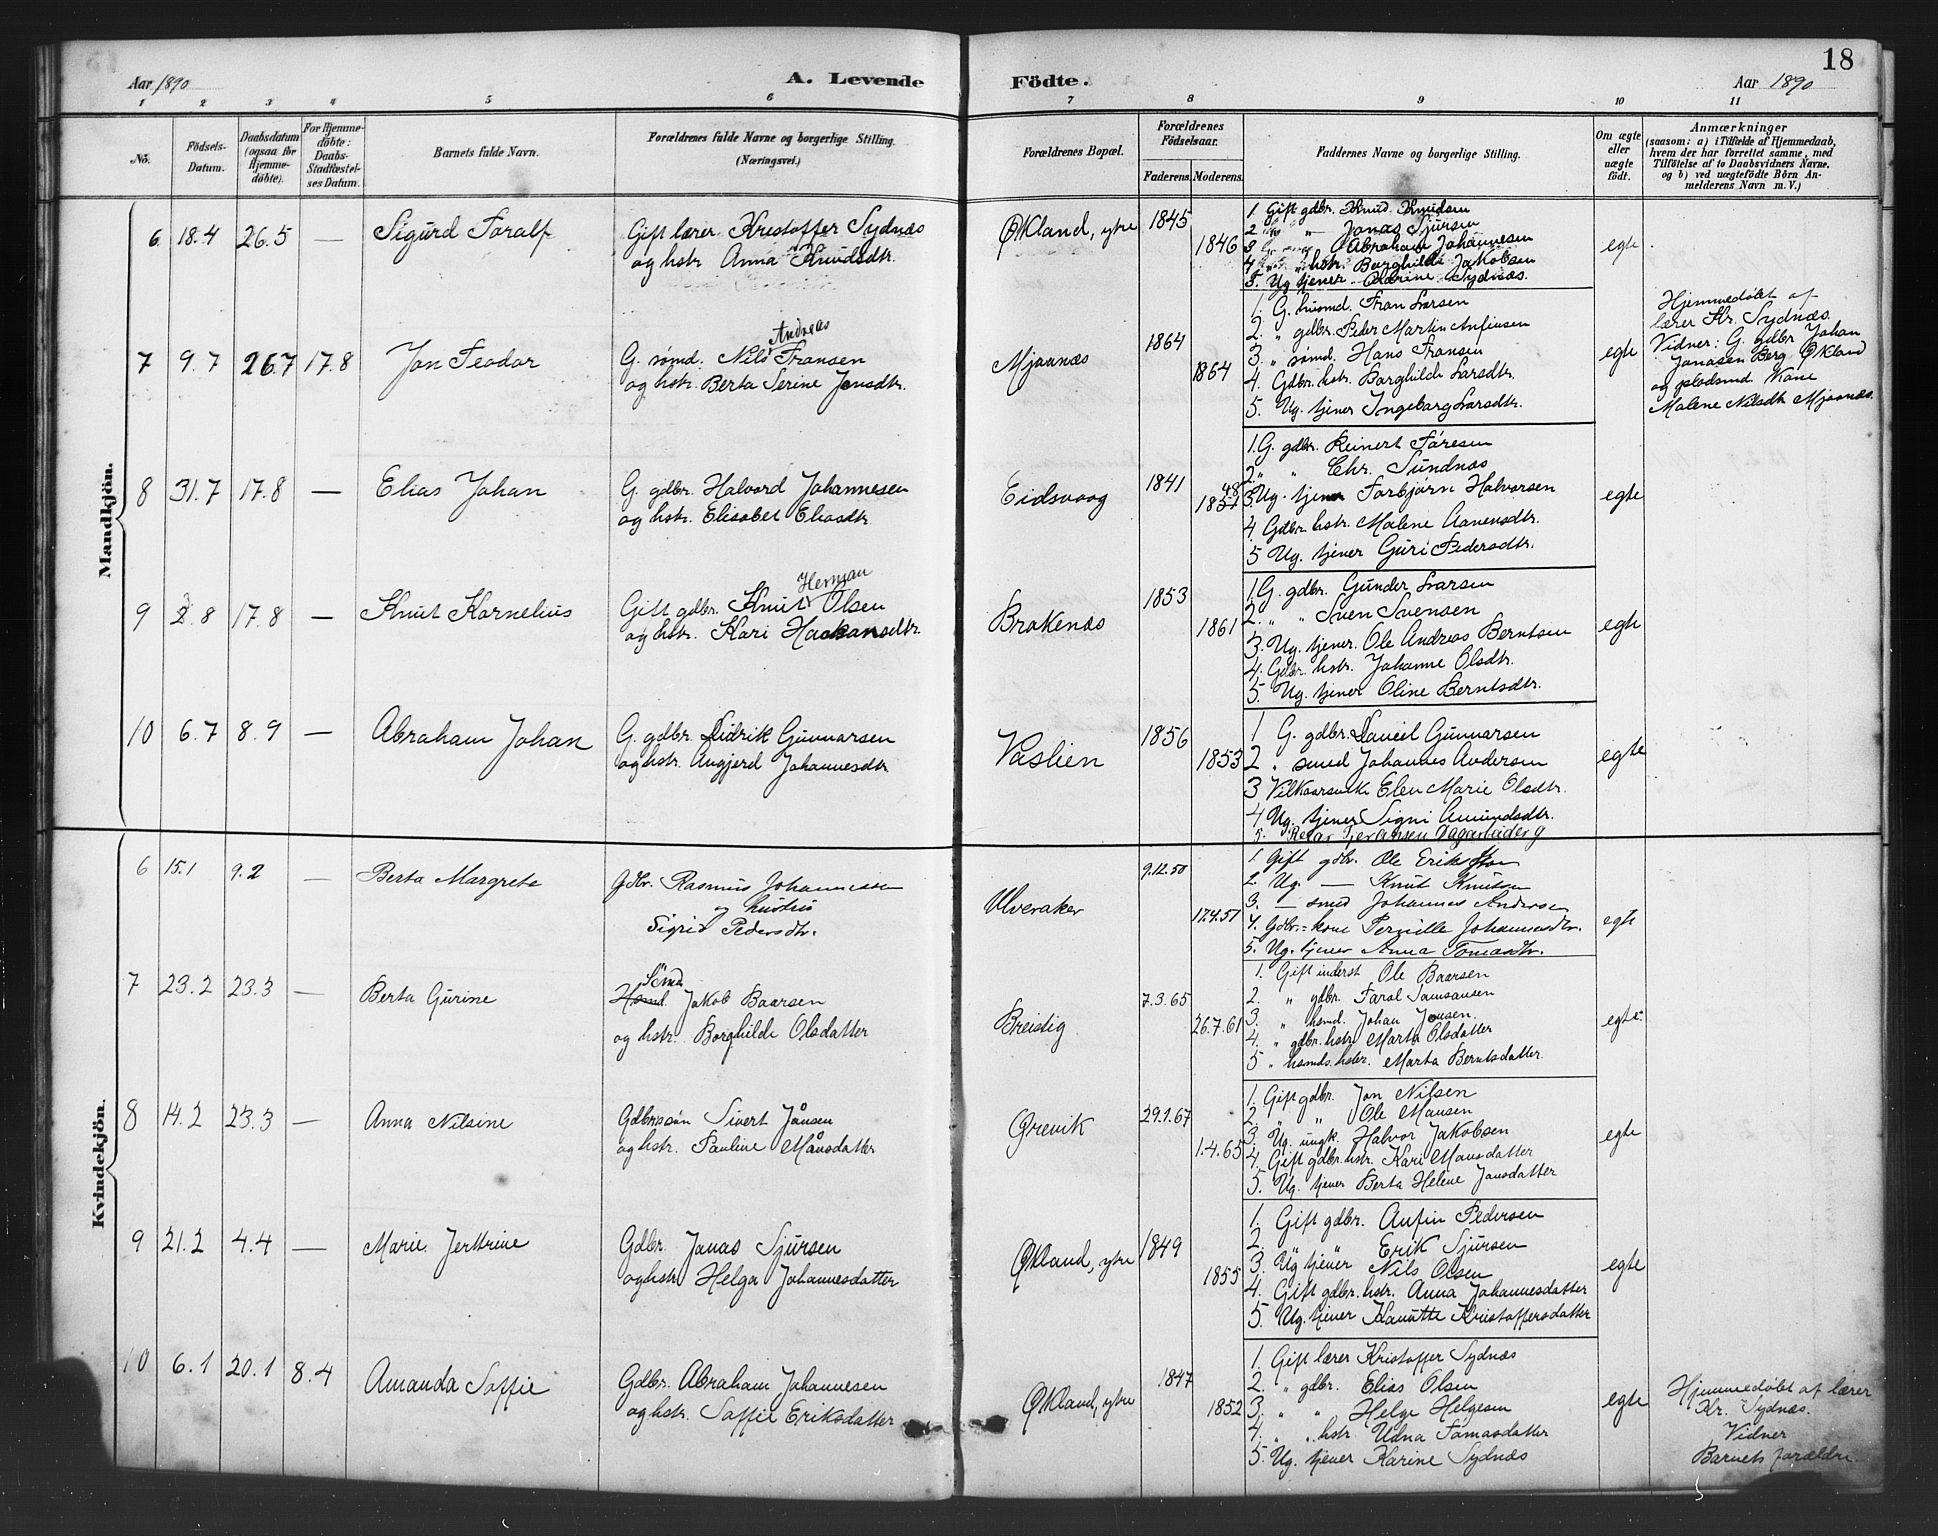 18
Aar 1890
A. Levende
Födte.
Aar 1890
1 2 3 4 5 6 7 8 9 10 11
No.
Födsels-
Datum.
Daabsdatum
(ogsaa för
Hjemme-
döbte).
For Hjemme-
döbte:
Daabs-
Stadfæstel-
ses Datum.
Barnets fulde Navn.
Forældrenes fulde Navne og borgerlige Stilling.
(Næringsvei.)
Forældrenes Bopæl.
Forældrenes
Födselsaar.
Faderens. Moderens.
Faddernes Navne og borgerlige Stilling.
Om ægte
eller
uægte
födt.
Anmærkninger
(saasom: a) i Tilfælde af Hjemmedaab,
hvem der har forrettet samme, med
Tilföielse af to Daabsvidners Navne.
og b) ved uægtefödte Börn An-
melderens Navn m. V.)
Mandkjön.
6 18.4 26.5 — Sigurd Toralf
Gift lærer Kristoffer Sydnæs
og hstr. Anna Knudsdtr.
Økland, ytre
1845
1846
1 Gift gdbr. Knud Knudsen
2 " — Jonas Sjursen
3 Abraham Johannesen
4 hstr. Borghilde Jakobsen
5. Ug tjener Karine Sydnæs.
egte
7 9.7 26.7 17.8 Jon Teodor
Andreas
G. sømd. Nils Fransen
og hstr. Berta Serine Jonsdtr.
Mjaanæs
1864
1864
1. G. husmd. Fran Larsen
2. " gdbr. Peder Martin Anfinsen
3. " sømd. Hans Fransen
4. Gdbr. hstr. Borghilde Larsdtr.
5. Ug. tjener Ingeborg Larsdtr.
egte
Hjemmedøbt af
lærer Kr. Sydnæs.
Vidner: G. gdbr Johan
Jonasen Berg Økland
og pladsmd Kone
Malene Nilsdtr Mjaanæs.
8 31.7 17.8 — Elias Johan
G. gdbr. Halvord Johannesen
og hstr. Elisabet Eliasdtr.
Eidsvaag
1841
48
1851
1. G. gdbr. Reinert Tøresen
2. " " Chr. Sundnæs
3. Ug. tjener Torbjørn Halvorsen
4 Gdbr. hstr. Malene Aanensdtr.
5 Ug. tjener Guri Pedersdtr.
egte
9 2.8 17.8 — Knut Kornelius
Herman
Gift gdbr. Knut Olsen
og hstr. Kari Haakansdtr.
Brakenæs
1853
1861
1. G. gdbr. Gunder Larsen
2. " " Sven Svensen
3. Ug. tjener. Ole Andreas Berntsen
4. Gdbr. hstr. Johanne Olsdtr.
5. Ug. tjener Oline Berntsdtr.
egte
10 6.7 8.9 — Abraham Johan
G. gdbr. Didrik Gunnarsen
og hstr. Angjerd Johannesdtr
Vaslien
1856
1853
1 G. gdbr. Daniel Gunnarsen
2 " smed Johannes Andersen
3 Vilkaarsenke Elen Marie Olsdtr.
4 Ug. tjener Signi Amundsdtr.
5.
egte
Kvindekjön.
6 15.1 9.2 — Berta Margrete
Gdbr. Rasmus Johannessen
og hustru
Sigrid Pedersdtr.
Ulveraker
9.12.50
17.4.51
1 Gift gdbr. Ole Erikson
2. Ug. — Knut Knutsen
3. — smed Johannes Andersen
4. Gdbr.-kone Pernille Johannesdtr.
5. Ug. tjener Anna Tomasdtr.
egte
7 23.2 23.3 — Berta Gurine
Sömd
Hsmd. Jakob Baarsen
og hstr. Borghilde Olsdatter
Breistig
7.3.65
26.7.61
1. Gift inderst Ole Baarsen
2. " gdbr. Taral Samsonsen
3. " hsmd. Johan Jonsen.
4. " gdbr. hstr Marta Olsdatter
5 " hsmds. hstr. Marta Berntsdatter.
egte
8 14.2 23.3 — Anna Nilsine
Gdbrssøn Sivert Jånsen
og hstr. Pauline Månsdatter
Grevik
29.1.67
1.4.65
1. Gift gdbr. Jon Nilsen
2. " " Ole Mansen
3. Ug. ungk. Halvor Jakobsen
4. Gift gdbr. hstr. Kari Mansdatter
5. Ug. tjener Berta Helene Jonsdatter
egte
9 21.2 4.4 — Marie Jertrine
Gdbr. Jonas Sjursen
og hstr Helga Johannesdatter
Økland, ytre
1849
1855
1. Gift gdbr. Anfin Pedersen
2. " " Erik Sjursen
3. Ug tjener Nils Olsen
4. Gift gdbr. hstr. Anna Johannesdatter
5. Ug. tjener Kanutte Kristoffersdatter
egte
10 6.1 20.1 8.4 Amanda Soffie
Gdbr. Abraham Johannesen
og hstr. Soffie Eriksdatter
Økland, ytre
1847
1852
1. Gift lærer Kristoffer Sydnæs
2. " gdbr. Elias Olsen
3. " " Helge Helgesen
4. " " hstr. Udna Tomasdatter
5. Ug. tjener Karine Sydnæs
egte
Hjemmedøbt af lærer
Kr. Sydnæs.
Vidner
Barnets forældre.